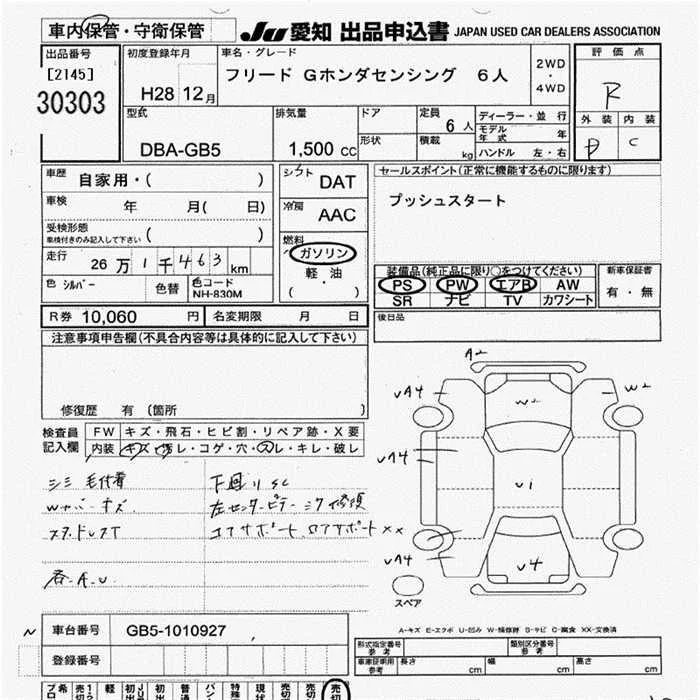 車内保管・守衛保管
JU 愛知 出品申込書 JAPAN USED CAR DEALERS ASSOCIATION
出品番号
[2145]
30303
初度登録年月
H28 12月
車名・グレード
フリード Gホンダセンシング 6人
2WD
・
4WD
評価点
R
型式
DBA-GB5
排気量
1,500 cc
ドア
形状
定員
6人
積載
kg
ディーラー・並行
モデル年式 年
ハンドル 左・右
外装 内装
D C
車歴
自家用・( )
車検
年 月( 日)
受検形態
車検付きのみ記入して下さい ( )
走行
26万1千463km
色 シルバー
色替
色コード
NH-830M
シフト
DAT
冷房
AAC
燃料
ガソリン
軽・油
( )
セールスポイント(正常に機能するものに限ります)
プッシュスタート
装備品(純正品に限り○をつけてください)
PS PW エアB AW
SR ナビ TV カワシート
新車保証書
有・無
R券 10,060円
名変期限 月 日
後日品
注意事項申告欄(不具合内容等は具体的に記入して下さい)
修復歴 有 (箇所 )
検査員
記入欄
FW キズ・飛石・ヒビ割・リペア跡・X要
内装 キズ・汚レ・コゲ・穴・スレ・キレ・破レ
シミ 毛付着
下廻リ SC
Wカバーキズ
各A.U
A2
UA4
W2
W2
UA4
U1
UA4
U4
スペア
A-キズ E-エクボ U-凹み W-補修跡 S-サビ C-腐食 XX-交換済
車台番号 GB5-1010927
登録番号
型式指定番号
参考
類別区分番号
参考
車庫証明用
参考
長さ cm
幅 cm
高さ cm